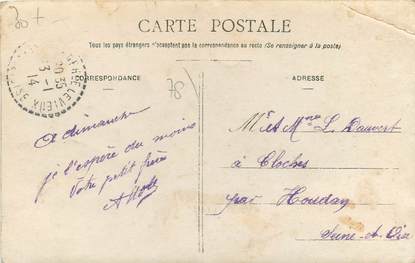 30+
CARTE POSTALE
Tous les pays étrangers n'acceptent pas la correspondance au recto (Se renseigner à la poste)
CORRESPONDANCE
ADRESSE
78
20 35
3-1
14
A dimanche
je l'espère du moins
Votre petit frère
Mr et Mme L. Dauvert
à Cloches
par Houdan
Seine-et-Oise